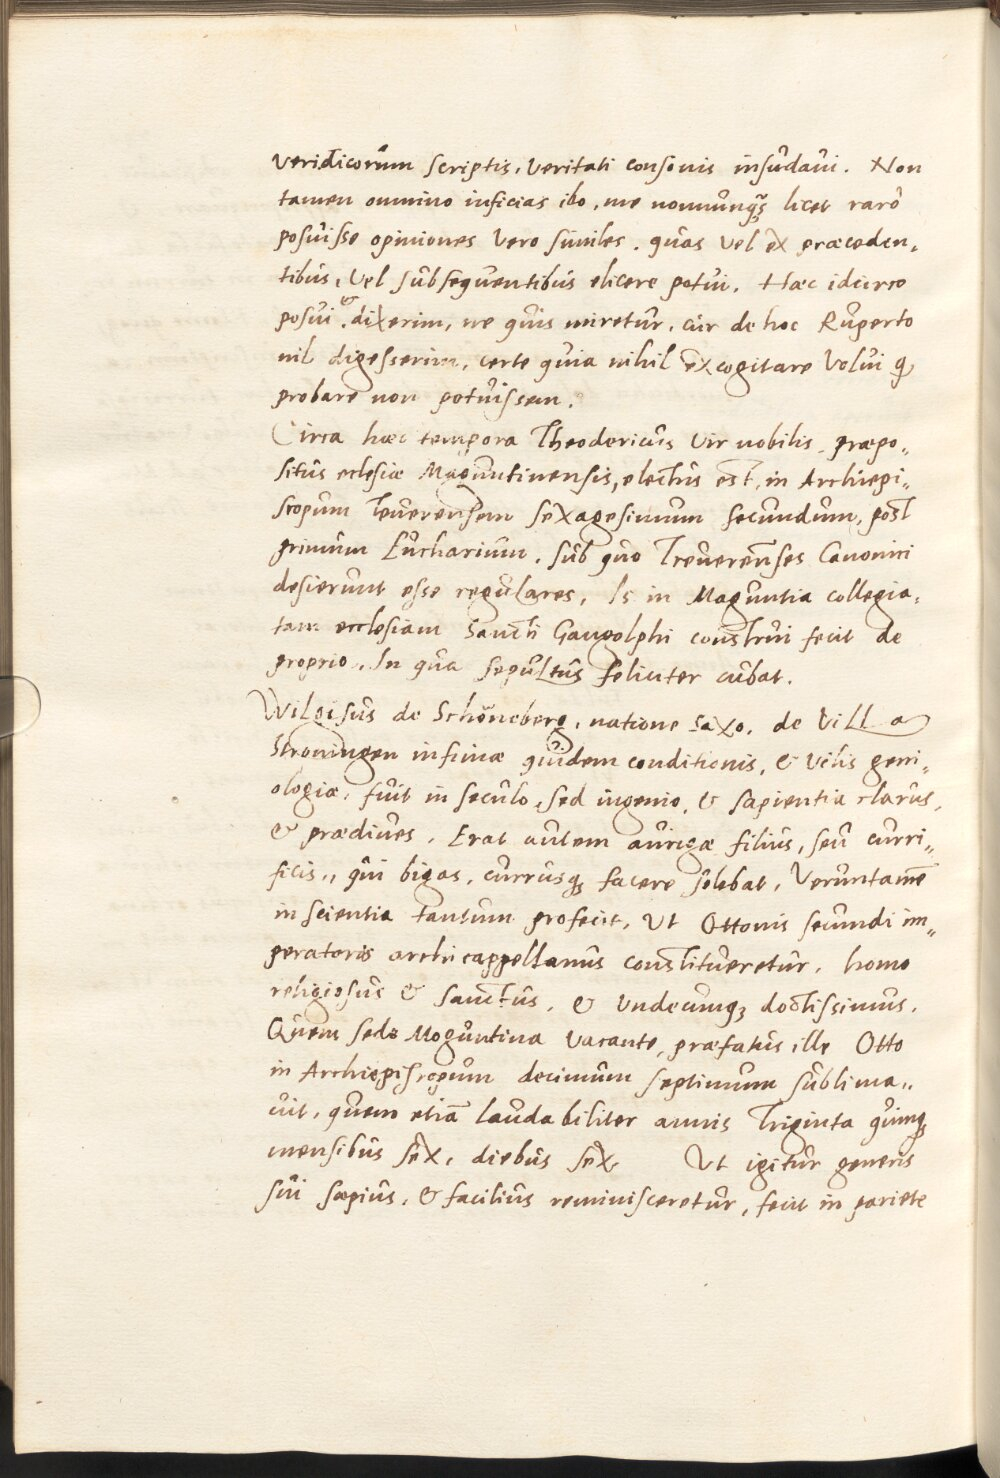 veridicorum scriptis, veritati consonis insudavi. Non
tamen omnino inficias ibo, me nonnunq̃ʒ licet rarò
posuisse opiniones vero similes, quas vel ex præceden,
tibus, vel subsequentibus elicere potui. Hæc idcirco
posui & dixerim, ne quis miretur, cur de hoc Ruperto
nil digesserim, certe quia nihil excogitare volui q̃
probare non potuissem.
Circa hæc tempora Theodericus vir nobilis, præpo,,
situs eclesiæ Maguntinensis, electus est, in Archiepi,,
scopum Teverensem sexagesimum secundum, post
primum Eucharium. sub quo Treverenses Canonici
desierunt esse regulares, Is in Maguntia collegia,
tam ecclesiam Sancti Gangolphi construi fecit de
proprio. In qua sepultus feliciter cubat.
Wilgisus de Schöneberg, natione saxo, de Villa
Stroningen infimæ quidem conditionis, & vilis geni,,
ologiæ, fuit in seculo, sed ingenio, & sapientia clarus,
& prædives. Erat autem aurigæ filius, seu curri,,
ficis, qui bigas, currusqʒ facere solebat, Veruntamē
in scientia tantum profecit, Ut Ottonis secundi im,,
peratoris archicappellanus constitueretur, homo
religiosus & sanctus, & undecunqʒ doctissimus.
Quem sede Moguntina vacante, præfatus ille Otto
in Archiepiscopum decimum septimum sublima,,
vit, quem etiā laudabiliter annis Triginta quinqʒ
mensibus sex, diebus sex Ut igitur generis
sui sæpius, & facilius reminisceretur, fecit in pariete